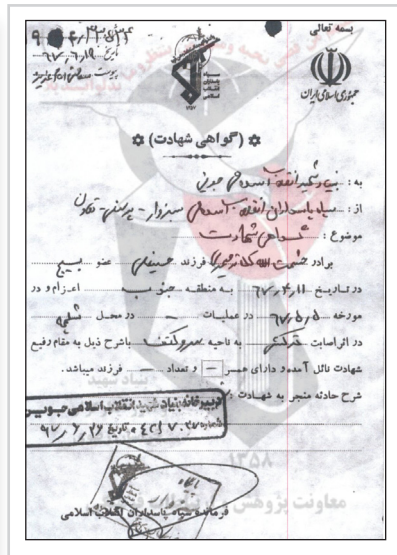 بسمه تعالی
جمهوری اسلامی ایران
سپاه
پاسداران
انقلاب
اسلامی
تاریخ ۶۷/۶/۱۹
پیوست
(گواهی شهادت)
به : بنیاد شهید انقلاب اسلامی جوین
از : سپاه پاسداران انقلاب اسلامی سبزوار - پرسنلی - تعاون
موضوع : گواهی شهادت
برادر حشمت الله فرزند حسینعلی عضو بسیج
در تاریخ ۶۷/۴/۱۱ به منطقه جنوب اعزام و در
مورخه ۶۷/۵/۵ در عملیات – در محل شلمچه
در اثر اصابت ترکش به ناحیه سر و کتف باشرح ذیل به مقام رفیع
شهادت نائل آمده و دارای همسر – و تعداد – فرزند میباشد.
شرح حادثه منجر به شهادت :
بنیاد شهید
دبیرخانه بنیاد شهید انقلاب اسلامی جوین
شماره ۴۲/۷۰۲۷ تاریخ ۶۷/۶/۲۶
۱۳۵۸
فرمانده سپاه پاسداران انقلاب اسلامی
معاونت پژوهش